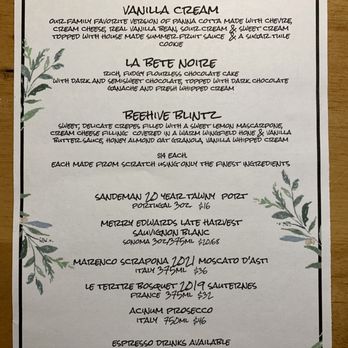 VANILLA CREAM
OUR FAMILY FAVORITE VERSION OF PANNA COTTA MADE WITH CHEVRE,
CREAM CHEESE, REAL VANILLA BEAN, SOUR CREAM & SWEET CREAM
TOPPED WITH HOUSE MADE SUMMER FRUIT SAUCE & A SUGAR TUILE
COOKIE
LA BETE NOIRE
RICH, FUDGY FLOURLESS CHOCOLATE CAKE
WITH DARK AND SEMISWEET CHOCOLATE, TOPPED WITH DARK CHOCOLATE
GANACHE AND FRESH WHIPPED CREAM
BEEHIVE BLINTZ
SWEET, DELICATE CREPES FILLED WITH A SWEET LEMON MASCARPONE,
CREAM CHEESE FILLING COVERED IN A WARM WINGFIELD HONE & VANILLA
BUTTER SAUCE, HONEY ALMOND OAT GRANOLA, VANILLA WHIPPED CREAM
$14 EACH.
EACH MADE FROM SCRATCH USING ONLY THE FINEST INGREDIENTS
SANDEMAN 20 YEAR TAWNY PORT
PORTUGAL 3OZ $16
MERRY EDWARDS LATE HARVEST
SAUVIGNON BLANC
SONOMA 3OZ/375ML $20/68
MARENCO SCRAPONA 2021 MOSCATO D'ASTI
ITALY 375ML $36
LE TERTRE BOSQUET 2019 SAUTERNES
FRANCE 375ML $32
ACINUM PROSECCO
ITALY 750ML $46
ESPRESSO DRINKS AVAILABLE